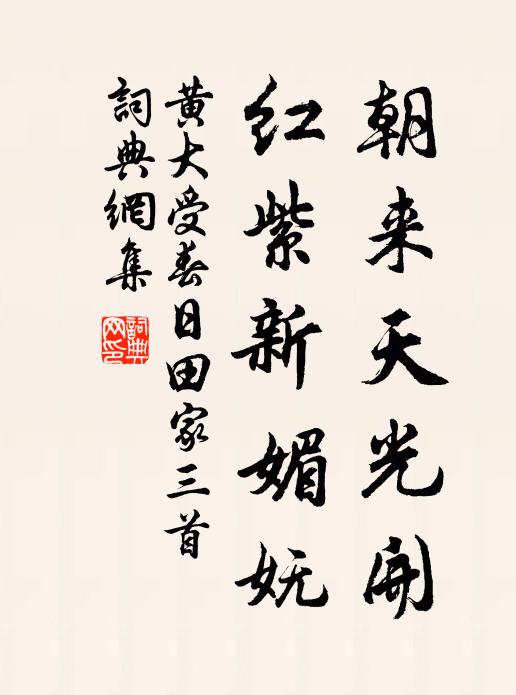 朝来天光開
红紫新媚妩
黄大受春日田家三首
詞典網集
詞典网印